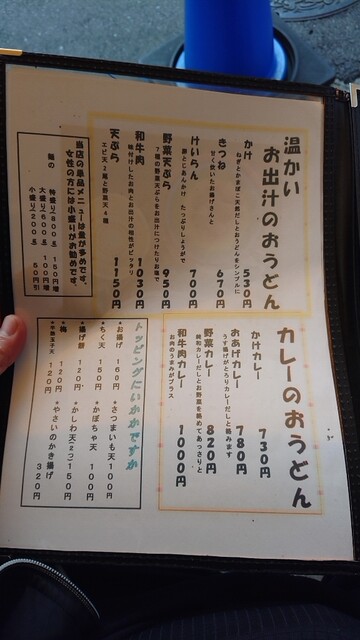 温かい
お出汁のおうどん
かけ 530円
ねぎとかまぼこ・天かすだしとおうどんをシンプルに
きつね 670円
甘く炊いたお揚げさんと
けいらん 700円
卵とじあんかけ たっぷりしょうがで
野菜天ぷら 950円
7種の野菜天ぷらをお出汁につけたりお塩で
和牛肉 1030円
味付けしたお肉とお出汁の相性がピッタリ
天ぷら 1150円
エビ天2尾と野菜天4種
当店の単品メニューは量が多めです。
女性の方には小盛りがお勧めです。
麺の
特盛り(800g) 150円増
大盛り(600g) 100円増
小盛り(200g) 50円引
カレーのおうどん
かけカレー 730円
おあげカレー 780円
うす揚げがとろりカレーだしと絡みます
野菜カレー 820円
和牛肉カレー 1000円
お肉のうまみがプラス
トッピングにいかがですか
•お揚げ 160円
•ちく天 150円
•揚げ餅 120円
•梅 120円
•半熟玉子天 120円
•さつまいも天 100円
•かぼちゃ天 100円
•かしわ天(2つ) 150円
•やさいのかき揚げ 320円